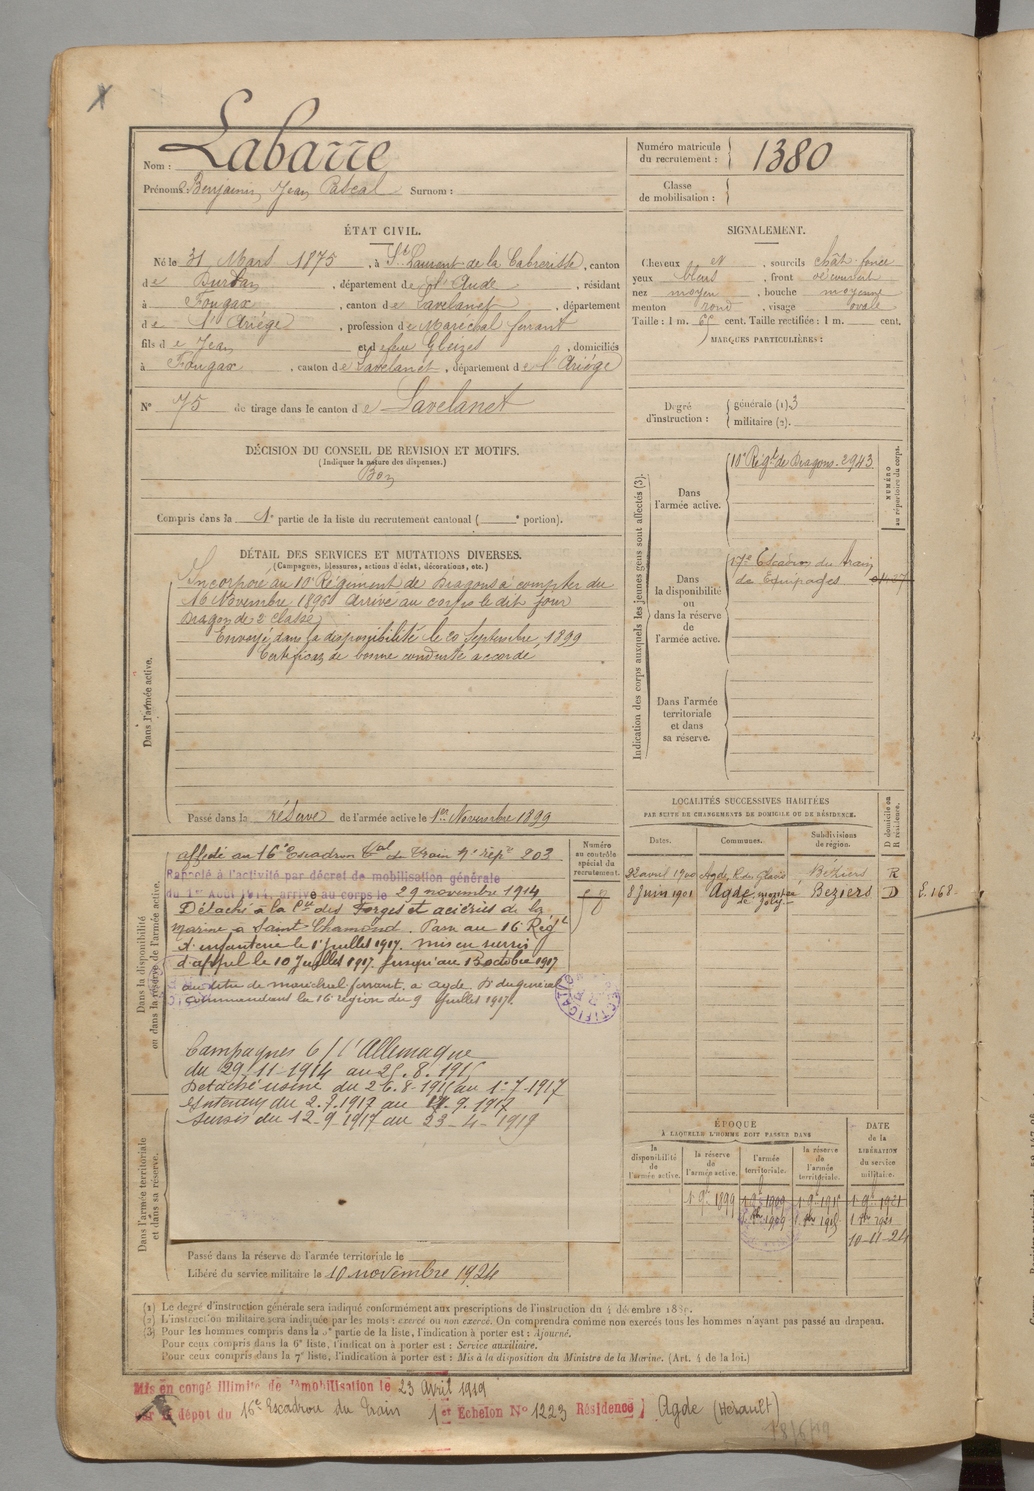 Nom : Labarre
Prénoms : Benjamin Jean Pascal Surnom :
Numéro matricule du recrutement : 1380
Classe de mobilisation :
ÉTAT CIVIL.
Né le 31 Mars 1875, à St Laurent de la Cabrerisse, canton
de Durban, département de l'Aude, résidant
à Fougax, canton de Lavelanet, département
de l'Ariège, profession de Maréchal ferrant
fils de Jean et de feue Gleizes, domiciliés
à Fougax, canton de Lavelanet, département de l'Ariège
N° 75 de tirage dans le canton de Lavelanet
SIGNALEMENT.
Cheveux et, sourcils chât. foncé
yeux bleus, front découvert
nez moyen, bouche moyenne
menton rond, visage ovale
Taille : 1 m. cent. Taille rectifiée : 1 m. cent.
MARQUES PARTICULIÈRES :
Degré d'instruction : générale (1) 3
militaire (2).
DÉCISION DU CONSEIL DE REVISION ET MOTIFS.
(Indiquer la nature des dispenses.)
Bon
Compris dans la 1e partie de la liste du recrutement cantonal ( e portion).
DÉTAIL DES SERVICES ET MUTATIONS DIVERSES.
(Campagnes, blessures, actions d'éclat, décorations, etc.)
Dans l'armée active.
Incorporé au 10e Régiment de Dragons à compter du
16 Novembre 1896 arrivé au corps le dit jour
Dragon de 2e classe
Envoyé dans la disponibilité le 20 Septembre 1899
Certificat de bonne conduite accordé
Passé dans la réserve de l'armée active le 1er Novembre 1899
Indication des corps auxquels les jeunes gens sont affectés (3).
NUMÉRO au répertoire du corps.
Dans l'armée active.
10e Régt de Dragons. 2943
Dans la disponibilité ou dans la réserve de l'armée active.
17e Escadron du train
des Equipages
Dans l'armée territoriale et dans sa réserve.
Dans la disponibilité ou dans la réserve de l'armée active.
Numéro au contrôle spécial du recrutement.
affecté au 16e Escadron tal du Train n° répre 203
Rappelé à l'activité par décret de mobilisation générale
du 1er Août 1914, arrivé au corps le 29 novembre 1914
Détaché à la Cie des Forges et aciéries de la
marine à Saint-Chamond. Passé au 16 Régt
d'infanterie le 1er Juillet 1917. mis en sursis
d'appel le 10 Juillet 1917. Jusqu'au 13 octobre 1917
au titre de maréchal ferrant, à Agde D. du général
commandant la 16 région du 9 Juillet 1917.
RECTIFICATIF
Campagnes c/ l'Allemagne
du 29-11-1914 au 25.8.1915
Détaché usine du 26.8-1915 au 1-7-1917
Intérieur du 2.7.1917 au 11.9.1917
Sursis du 12-9-1917 au 23-4-1919
Dans l'armée territoriale et dans sa réserve.
Passé dans la réserve de l'armée territoriale le
Libéré du service militaire le 10 novembre 1924
LOCALITÉS SUCCESSIVES HABITÉES
PAR SUITE DE CHANGEMENTS DE DOMICILE OU DE RÉSIDENCE.
Dates. Communes. Subdivisions de région. D domicile ou R résidence.
22 avril 1900 Agde Béziers R
8 Juin 1901 Agde Béziers D E. 168
ÉPOQUE
À LAQUELLE L'HOMME DOIT PASSER DANS
la disponibilité de l'armée active.
la réserve de l'armée active.
l'armée territoriale.
la réserve de l'armée territoriale.
DATE de la LIBÉRATION du service militaire.
1-9-1899 1-9-1909 1-9-1915 1-9-1921
10-11-24
(1) Le degré d'instruction générale sera indiqué conformément aux prescriptions de l'instruction du 4 décembre 1889.
(2) L'instruction militaire sera indiquée par les mots : exercé ou non exercé. On comprendra comme non exercés tous les hommes n'ayant pas passé au drapeau.
(3) Pour les hommes compris dans la 5e partie de la liste, l'indication à porter est : Ajourné.
Pour ceux compris dans la 6e liste, l'indication à porter est : Service auxiliaire.
Pour ceux compris dans la 7e liste, l'indication à porter est : Mis à la disposition du Ministre de la Marine. (Art. 4 de la loi.)
Mis en congé illimité de démobilisation le 23 Avril 1919
dépôt du 16e Escadron du Train 1er Echelon N° 1223 Résidence Agde (Hérault)